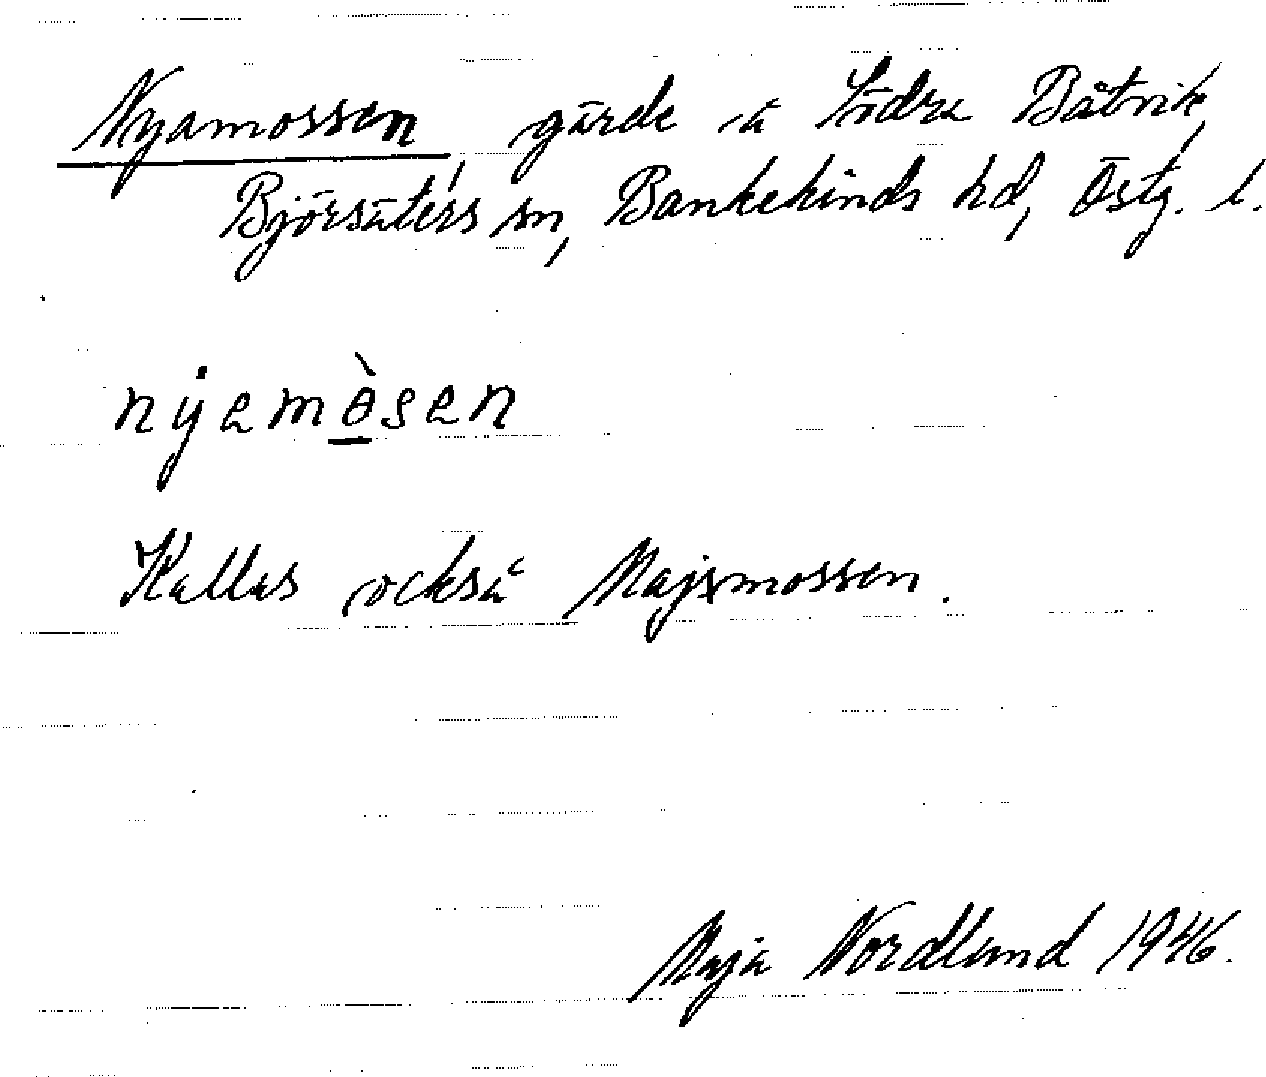 Nyamossen, gärde å Södra Båtvik,
Björsäters sn, Bankekinds hd, Östg. l.
nẙamòsen
Kallas också Majsmossen.
Maja Nordlund 1946.